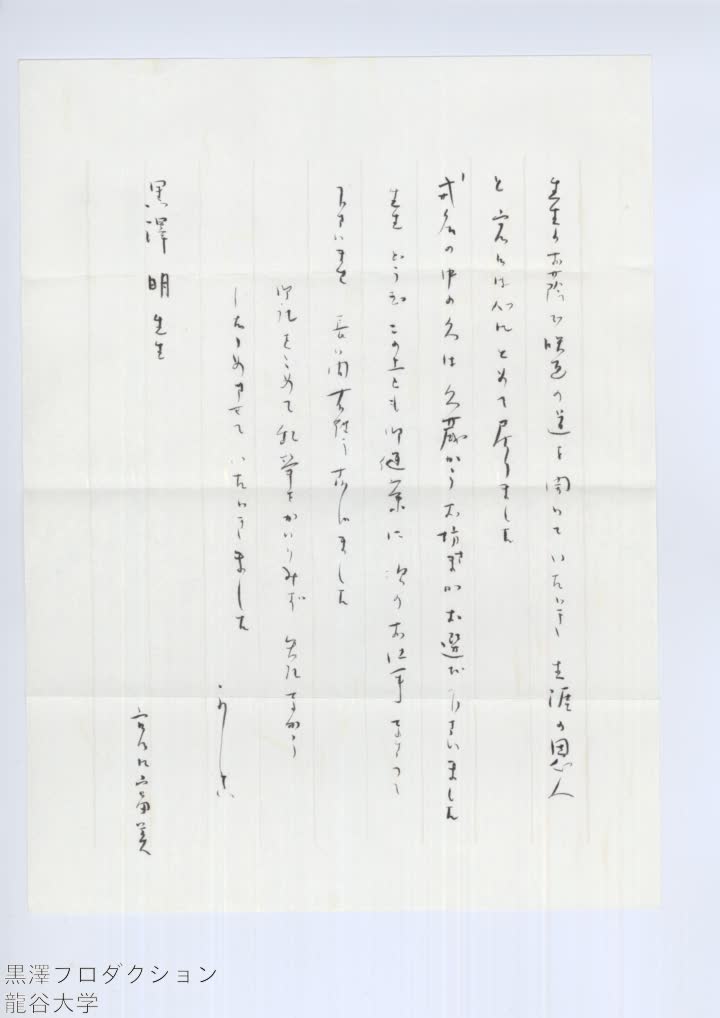 先生のお蔭で映画の道を開いていただき 生涯の恩人
と 宮口は心にとめて居りました
戒名の中の久は 久蔵からお坊さまがお選び下さいました
先生 どうぞ この上とも御健康に 次のお仕事をなさって
下さいませ 長い間 有難う存じました
御礼をこめて 乱筆をかえりみず 失礼ながら
したためさせて いただきました
かしこ
黒澤 明 先生
宮口 富美
黒澤プロダクション
龍谷大学